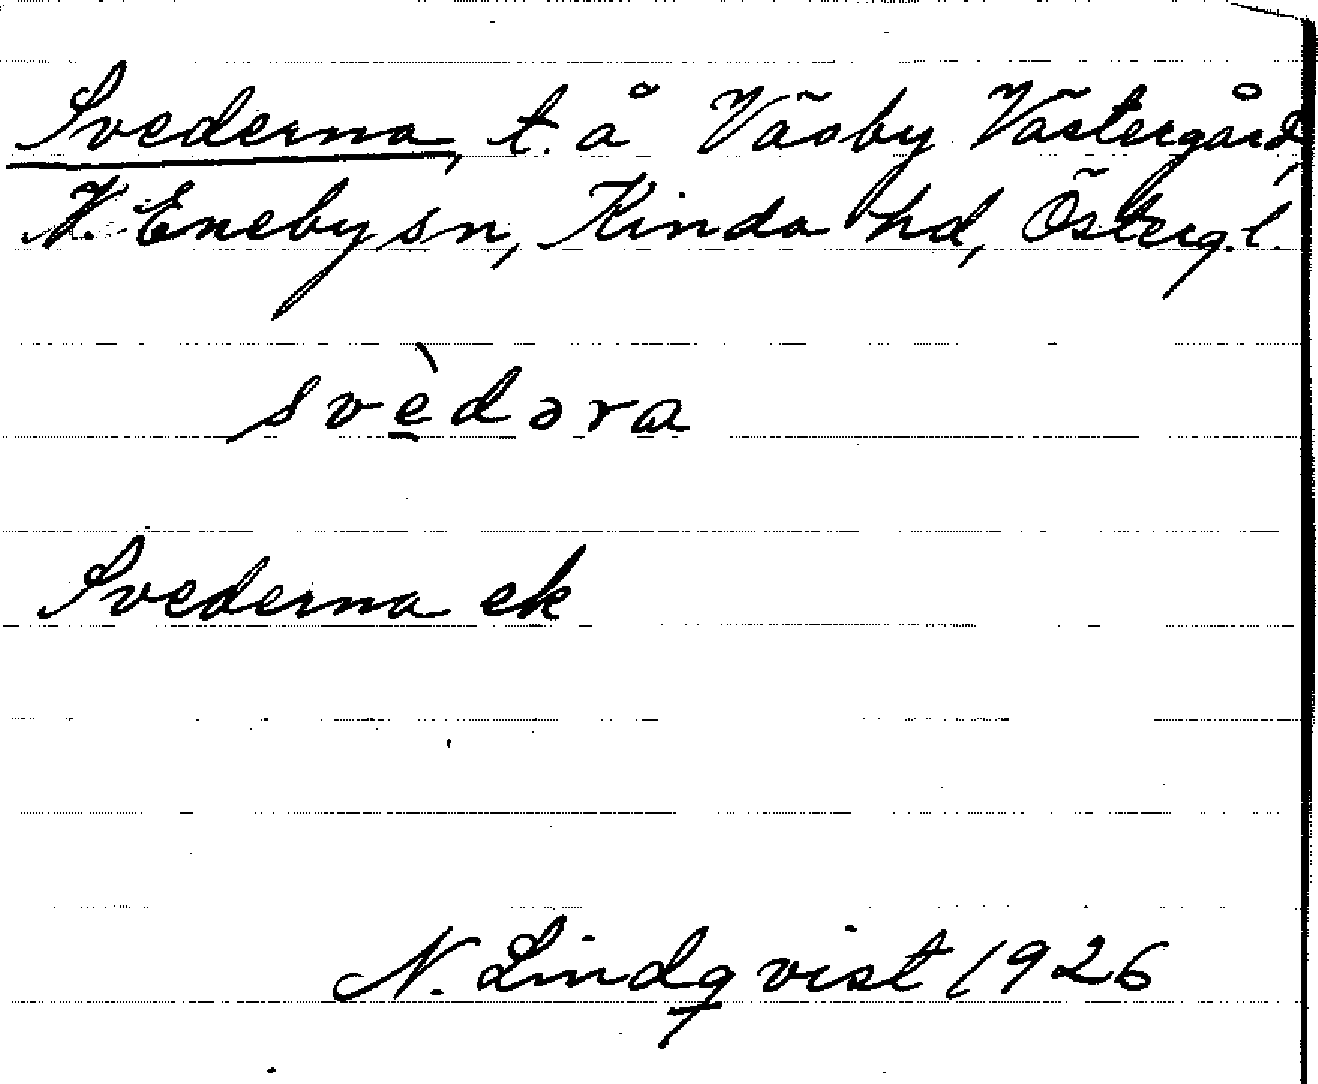 Svederna, t. å Väsby Västergård,
V. Eneby sn, Kinda hd, Östergl.
svèdəra
Svederna ek
N. Lindqvist 1926